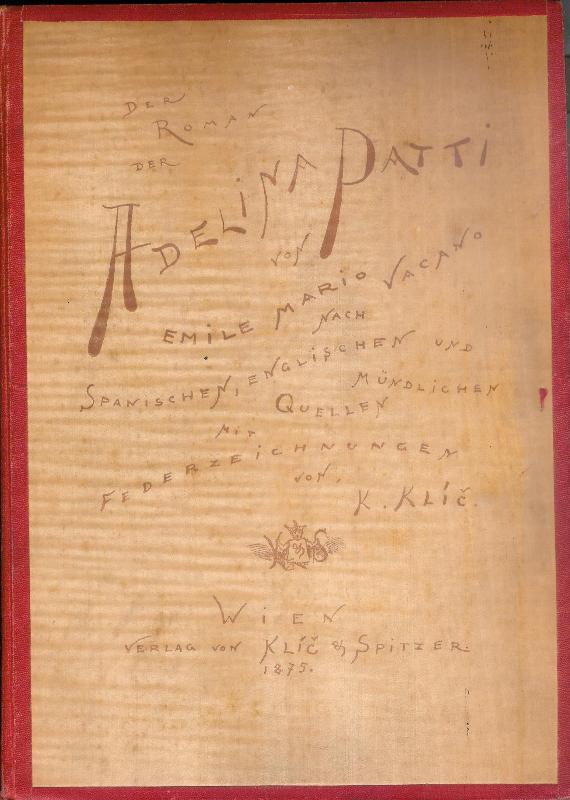 DER
ROMAN
DER
ADELINA PATTI
VON
EMILE MARIO VACANO
NACH
SPANISCHEN, ENGLISCHEN UND
MÜNDLICHEN
QUELLEN
MIT
FEDERZEICHNUNGEN
VON
K. KLÍČ.
WIEN
VERLAG VON KLÍČ & SPITZER.
1875.